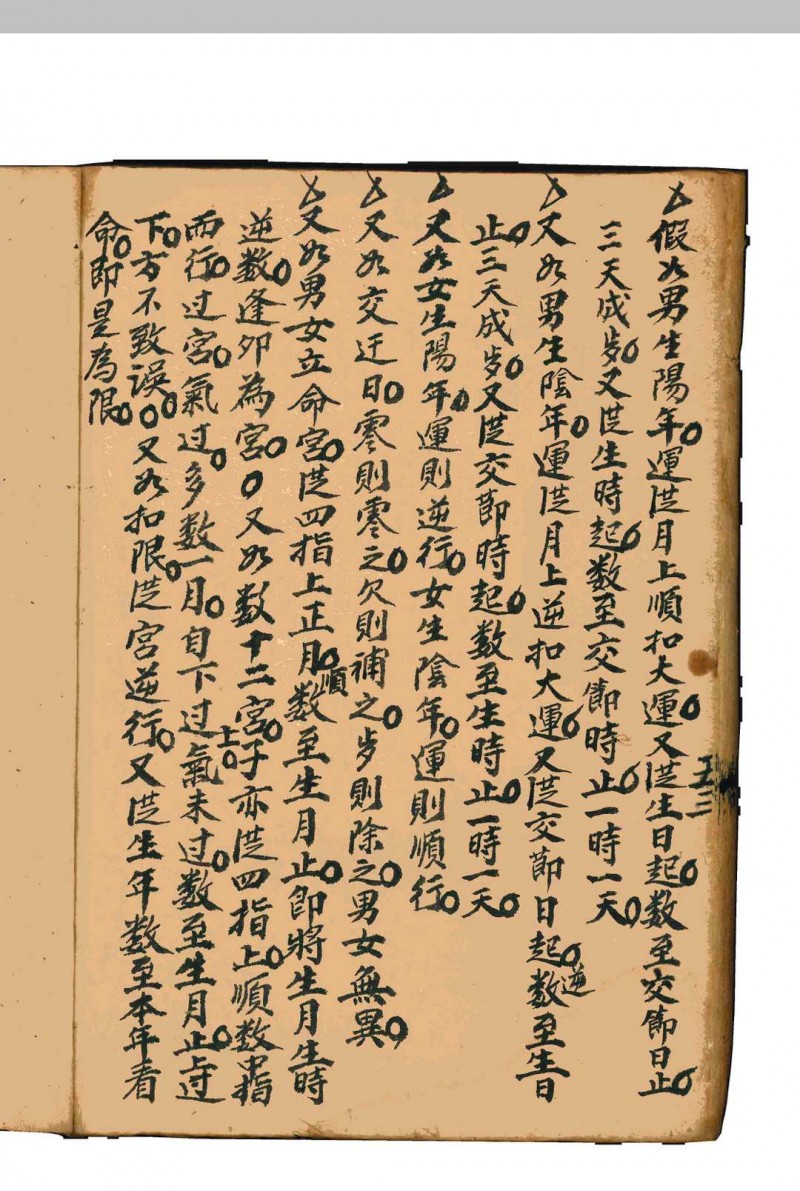 假如男生陽年。運從月上順扣大運。又從生日起。数至交節日止。
三天成歩。又從生時起。数至交節時止。一時一天。
又如男生陰年。運從月上逆扣大運。又從交節日起。逆数至生日
止。三天成歩。又從交節時起。数至生時止。一時一天。
又如女生陽年。運則逆行。女生陰年。運則順行。
又如交迁日。零則零之。欠則補之。歩則除之。男女無異。
又如男女立命宮。從四指上正月。順数至生月止。即將生月生時
逆数。逢卯為宮。〇又如数十二宮。子上。亦從四指上。順数中指
而行。过宮氣过。多数一月。自下过氣未过。数至生月止。上过
下。方不致誤。〇又如扣限。從宮逆行。又從生年数至本年看
命。即是為限。